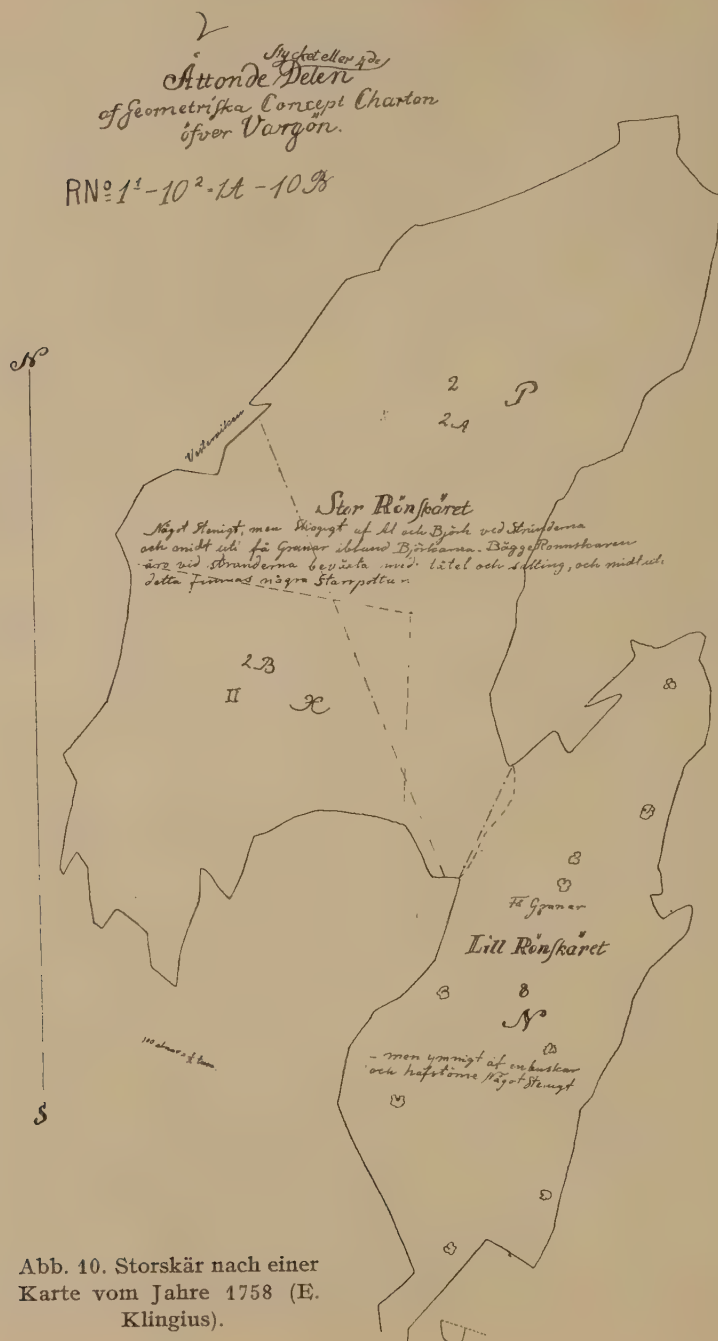 2
Stycket eller 4de
Åttonde Delen
af Geometriska Concept Chartan
öfver Vargön.
RNo 1¹-10²-1A-10B
N
2
P
2A
Stor Rönskäret
Något Stenigt, men Skogigt af Al och Björk ved Stränderna
och midt uti få Granar ibland Björkarna. Bägge Rönnskären
äro vid stränderna beväxta med tåtel och salting, och midt uti
detta Finnas några Starrpottur
2B
II
Få Granar
Lill Rönskäret
8
N
- men ymnigt af enbuskar
och hafstörne Något Stenigt
S
Abb. 10. Storskär nach einer
Karte vom Jahre 1758 (E.
Klingius).